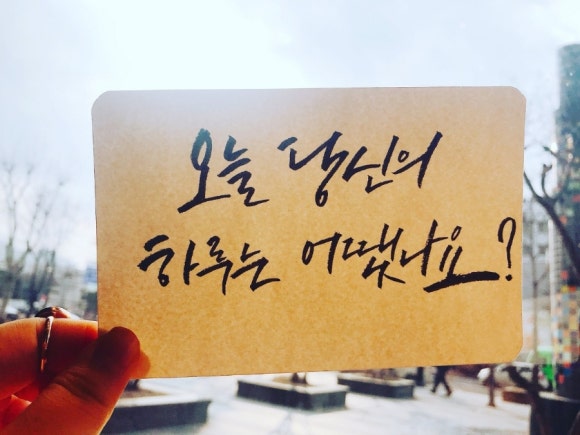 오늘 당신의
하루는 어땠나요?